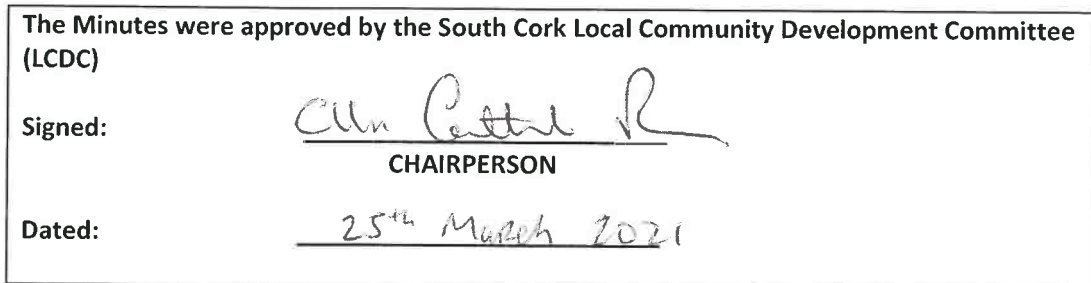 The Minutes were approved by the South Cork Local Community Development Committee
(LCDC)
Signed: Cllr
CHAIRPERSON
Dated: 25th March 2021